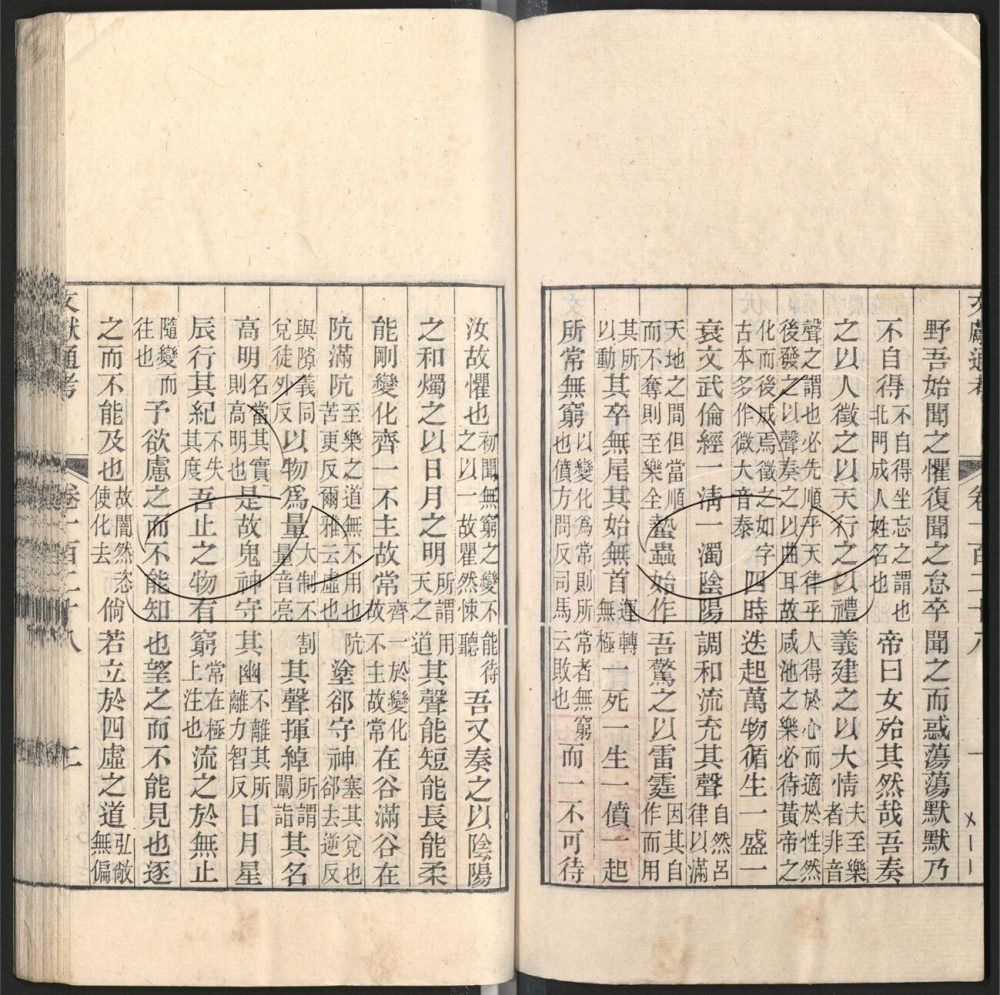 文獻通考 卷一百二十八
野吾始聞之懼復聞之怠卒聞之而惑蕩蕩默默乃
不自得不自得坐忘之謂也北門成人姓名也帝曰女殆其然哉吾奏
之以人徵之以天行之以禮義建之以大情夫至樂者非音
聲之謂也必先順乎天律乎人得於心而適於性然後發之以聲奏之以曲耳故咸池之樂必待黃帝之
化而後成焉徵之如字古本多作徽大音泰四時迭起萬物循生一盛一
衰文武倫經一清一濁陰陽調和流充其聲自然呂律以滿
天地之間但當順而不奪則至樂全蟄蟲始作吾驚之以雷霆因其自作而用
其所以動其卒無尾其始無首運轉無極一死一生一僨一起
所常無窮以變化爲常則所常者無窮也僨方問反司馬云敗也而一不可待
汝故懼也初聞無窮之變不能待之以一故瞿然悚聽吾又奏之以陰陽
之和燭之以日月之明所謂用天之道其聲能短能長能柔
能剛變化齊一不主故常齊一於變化故不主故常在谷滿谷在
阬滿阬至樂之道無不用也阬苦更反爾雅云虛也塗郤守神塞其兌也郤去逆反
與隙義同兌徒外反以物爲量大制不割量音亮其聲揮綽所謂闡諧其名
高明名當其實則高明也是故鬼神守其幽不離其所離力智反日月星
辰行其紀不失其度吾止之物有窮常在極上注也流之於無止
隨變而往也予欲慮之而不能知也望之而不能見也逐
之而不能及也故闇然恣使化去倘若立於四虛之道弘敞無偏
文獻通考 卷一百二十八